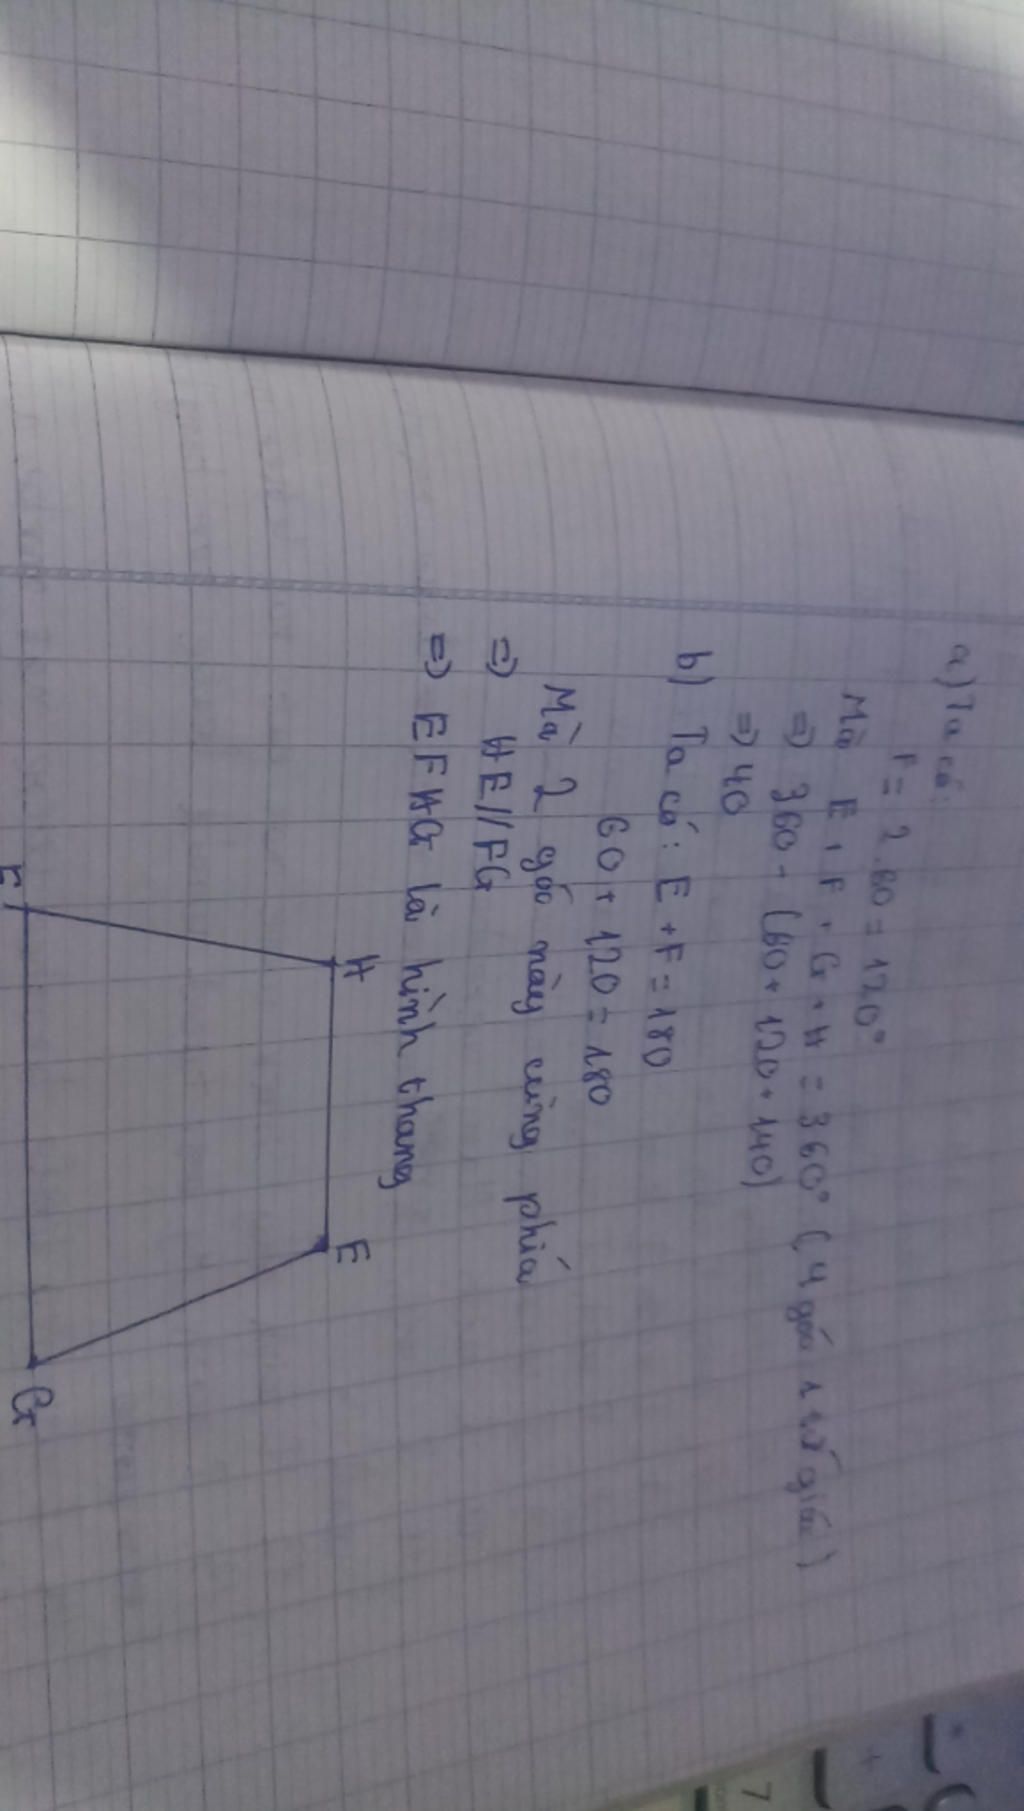 a) Ta có:
F = 2.60 = 120°
Mà E + F + G + H = 360° (4 góc 1 tứ giác)
=) 360 - (60 + 120 + 140)
=) 40
b) Ta có: E + F = 180
60 + 120 = 180
Mà 2 góc này cùng phía
=) HE//FG
=) EFHG là hình thang
H
E
F
G
7
+